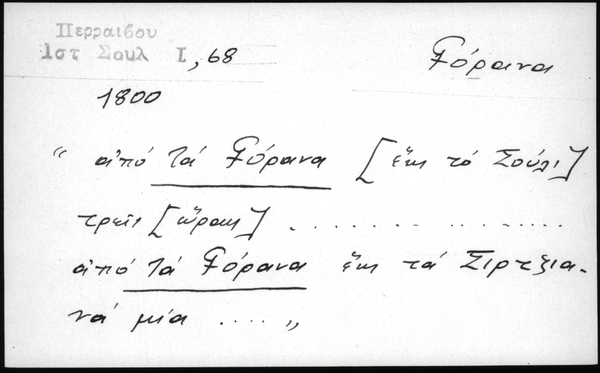 Περραιβου
Ιστ Σουλ Ι, 68
Γόρανα
1800
“ ἀπό τά Γόρανα [ἕως τό Σούλι]
τρεῖς [ὥρας] . . . . . . . . . . . .
ἀπό τά Γόρανα ἕως τά Σιρτζια-
νά μία .... „